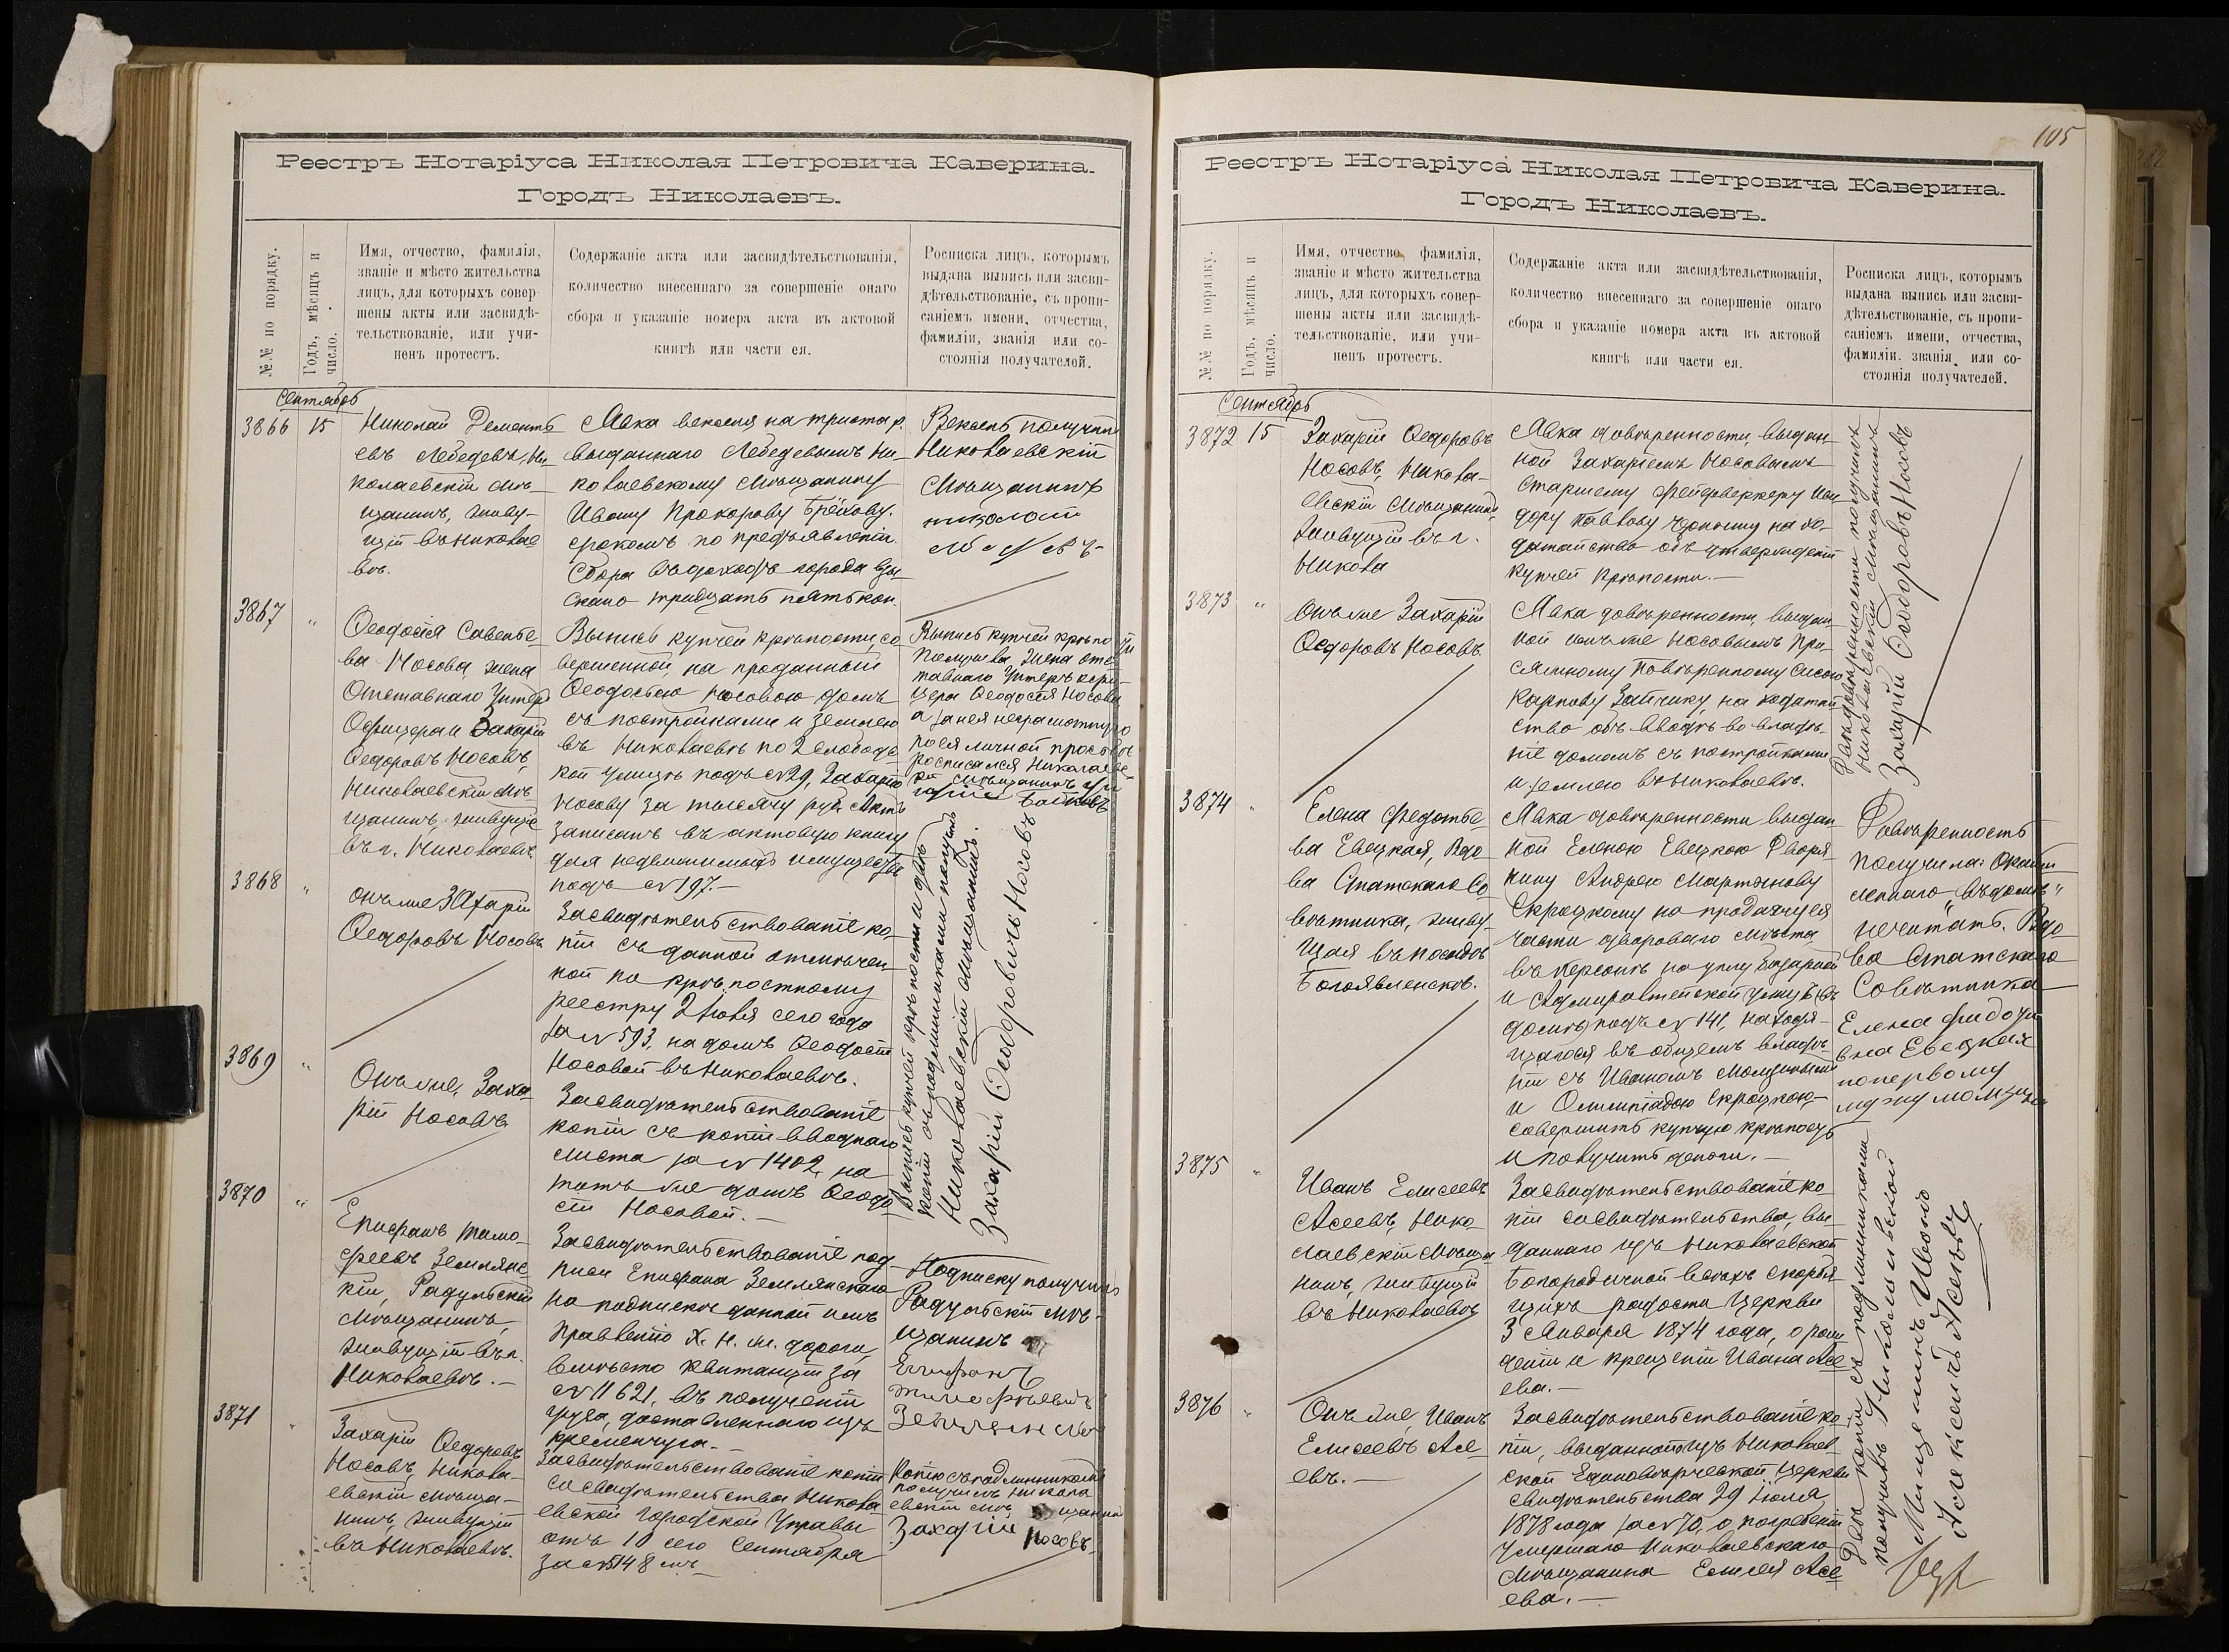 Реестръ Нотаріуса Николая Петровича Каверина.
Городъ Николаевъ.
№№ по порядку.
Годъ, мѣсяцъ и
число.
Имя, отчество, фамилія,
званіе и мѣсто жительства
лицъ, для которыхъ совер-
шены акты или засвидѣ-
тельствованіе, или учи-
ненъ протестъ.
Содержаніе акта или засвидѣтельствованія,
количество внесеннаго за совершеніе онаго
сбора и указаніе номера акта въ актовой
книгѣ или части ея.
Росписка лицъ, которымъ
выдана выпись или засви-
дѣтельствованіе, съ пропи-
саніемъ имени, отчества,
фамиліи, званія или со-
стоянія получателей.
Сентябрь
3866
15
Николай Дементь
евъ Лебедевъ, Ни
колаевскій мѣ
щанинъ, живу-
щій въ Николае
вѣ.
Явка векселя на триста р.
выданнаго Лебедевымъ Ни
колаевскому мѣщанину
Ивану Прохорову Грѣхову.
срокомъ по предъявленіи.
Сбора въ доходъ города взы
скано тридцать пять коп.
Вексель получилъ
Николаевскій
Мѣщанинъ
николай
3867
"
Ѳеодосія Савелье
ва Носова, жена
Отставнаго Унтеръ
Офицера и Захарій
Ѳедоровъ Носовъ,
Николаевскій мѣ
щанинъ, живущіе
въ г. Николаевѣ.
Выпись купчей крѣпости, со
вершенной, на проданный
Ѳеодосіею Носовою домъ
съ постройками и землею
въ Николаевѣ по 2 Слободс
кой улицѣ подъ № 29, Захарію
Носову за тысячу руб. Актъ
записанъ въ актовую книгу
для недвижимыхъ имуществъ
подъ № 197.-
Выпись купчей крѣпости
получила жена отс
тавнаго Унтеръ офи
цера Ѳеодосія Носова
а за нея неграмотную
по ея личной просьбѣ
росписался Николаевс-
кій мѣщанинъ
3868
"
Онъ же Захарій
Ѳедоровъ Носовъ
Засвидѣтельствованіе ко-
піи съ данной отмѣчен
ной по крѣпостному
реестру 2 Іюля сего года
за № 593, на домъ Ѳеодосіи
Носовой въ Николаевѣ.
3869
"
Онъ же, Заха
рій Носовъ
Засвидѣтельствованіе
копіи съ копіи вводнаго
листа за № 1402, на
тотъ же домъ Ѳеодо
сіи Носовой.-
Выпись купчей крѣпости и двѣ
копіи съ подлинниками получилъ
Николаевскій мѣщанинъ.
Захарій Ѳедоровичъ Носовъ
3870
"
Епифанъ Тимо-
феевъ Землянс
кій, Радульскій
мѣщанинъ,
живущій въ г.
Николаевѣ.-
Засвидѣтельствованіе под
писи Епифана Землянскаго
на подпискѣ данной имъ
Правленію Х. Н. ж. дороги,
вмѣсто квитанціи за
№ 11621, въ полученіи
груза, доставленнаго изъ
Кременчуга.-
Подписку получилъ
Радульскій мѣ-
щанинъ
Епифанъ
Тимофѣевичъ
3871
"
Захарій Ѳедоровъ
Носовъ, Никола-
евскій мѣща-
нинъ, живущій
въ Николаевѣ.
Засвидѣтельствованіе копіи
со свидѣтельства Никола
евской Городской Управы
отъ 10 сего Сентября
за № 5148 мъ
Копію съ подлинникомъ
получилъ Никола
евскій мѣщанинъ
Захарій Носовъ.
105
Реестръ Нотаріуса Николая Петровича Каверина.
Городъ Николаевъ.
№№ по порядку.
Годъ, мѣсяцъ и
число.
Имя, отчество, фамилія,
званіе и мѣсто жительства
лицъ, для которыхъ совер-
шены акты или засвидѣ-
тельствованіе, или учи-
ненъ протестъ.
Содержаніе акта или засвидѣтельствованія,
количество внесеннаго за совершеніе онаго
сбора и указаніе номера акта въ актовой
книгѣ или части ея.
Росписка лицъ, которымъ
выдана выпись или засви-
дѣтельствованіе, съ пропи-
саніемъ имени, отчества,
фамиліи, званія или со-
стоянія получателей.
Сентябрь
3872
15
Захарій Ѳедоровъ
Носовъ, Никола-
евскій мѣщанинъ
живущій въ г.
Никола
Явка довѣренности, выдан-
ной Захаріемъ Носовымъ
Старшему фейерверкеру
Павлову на хо-
датайство объ утвержденіи
купчей крѣпости.-
3873
"
Онъ же Захарій
Ѳедоровъ Носовъ.
Явка довѣренности, выдан
ной имъ же Носовымъ При-
сяжному Повѣренному
Карпову Зайчику, на ходатай
ство объ вводѣ во владѣ-
ніе домомъ съ постройками
и землею въ Николаевѣ.
Двѣ довѣренности получилъ
Николаевскій мѣщанинъ
Захарій Ѳедоровъ Носовъ
3874
"
Елена Федотье
ва Евецкая, Вдо
ва Статскаго Со
вѣтника, живу-
щая въ посадѣ
Богоявленскѣ.
Явка довѣренности выдан
ной Еленою Евецкою Дворя
нину Андрею Мартынову
Скроцкому на продажу ея
части двороваго мѣста
въ Херсонѣ на углу Базарной
и Адмиралтейской улицъ, съ
домомъ подъ № 141, находя-
щагося въ общемъ владѣ-
ніи съ Иваномъ
и Олимпіадою Скроцкою-
совершить купчую крѣпость
и получить деньги.-
Довѣренность
получила:
нечитать. Вдо
ва Статскаго
Совѣтника
Елена
вна Евецкая
по первому
мужу
3875
"
Иванъ Елисеевъ
Асеевъ, Нико
лаевскій мѣща
нинъ, живущій
въ Николаевѣ
Засвидѣтельствованіе ко
піи со свидѣтельства, вы
даннаго изъ Николаевской
Богородичной всѣхъ скорбя
щихъ радости Церкви
3 Января 1874 года, о рож
деніи и крещеніи Ивана Асе
ева.-
3876
"
Онъ же, Иванъ
Елисеевъ Асе
евъ.-
Засвидѣтельствованіе ко
піи, выданной изъ Николаев
ской Единовѣрческой Церкви
свидѣтельства 29 Іюля
1878 года за № 70, о погребеніи
умершаго Николаевскаго
мѣщанина Елисея Асе
ева.-
Двѣ копіи съ подлинниками
получивъ
Мищенинъ
Асеевъ